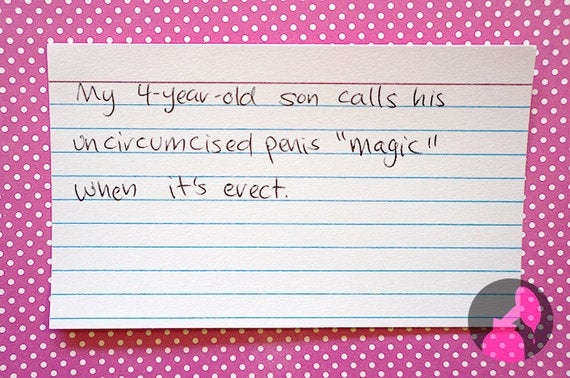 My 4-year-old son calls his
uncircumcised penis "magic"
when it's erect.